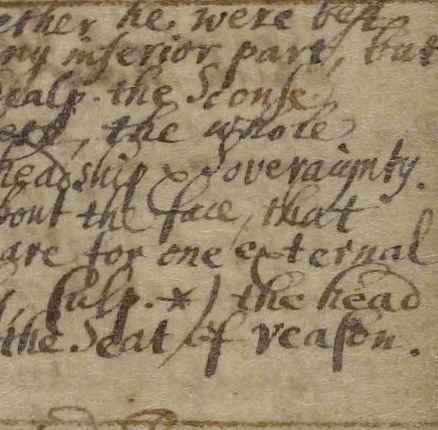 ether he were best
ny inferior part, but
scalp. the Sconse
the whole
headship & Soveraignty.
bout the face, that
are for one external
pulp. *) the head
the Seat of reason.